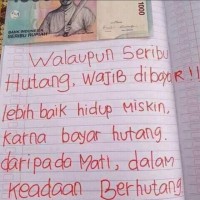 1000
BANK INDONESIA
SERIBU RUPIAH
Walaupun Seribu
Hutang, Wajib dibayar!!
lebih baik hidup Miskin,
karna bayar hutang.
daripada Mati, dalam
Keadaan Berhutang